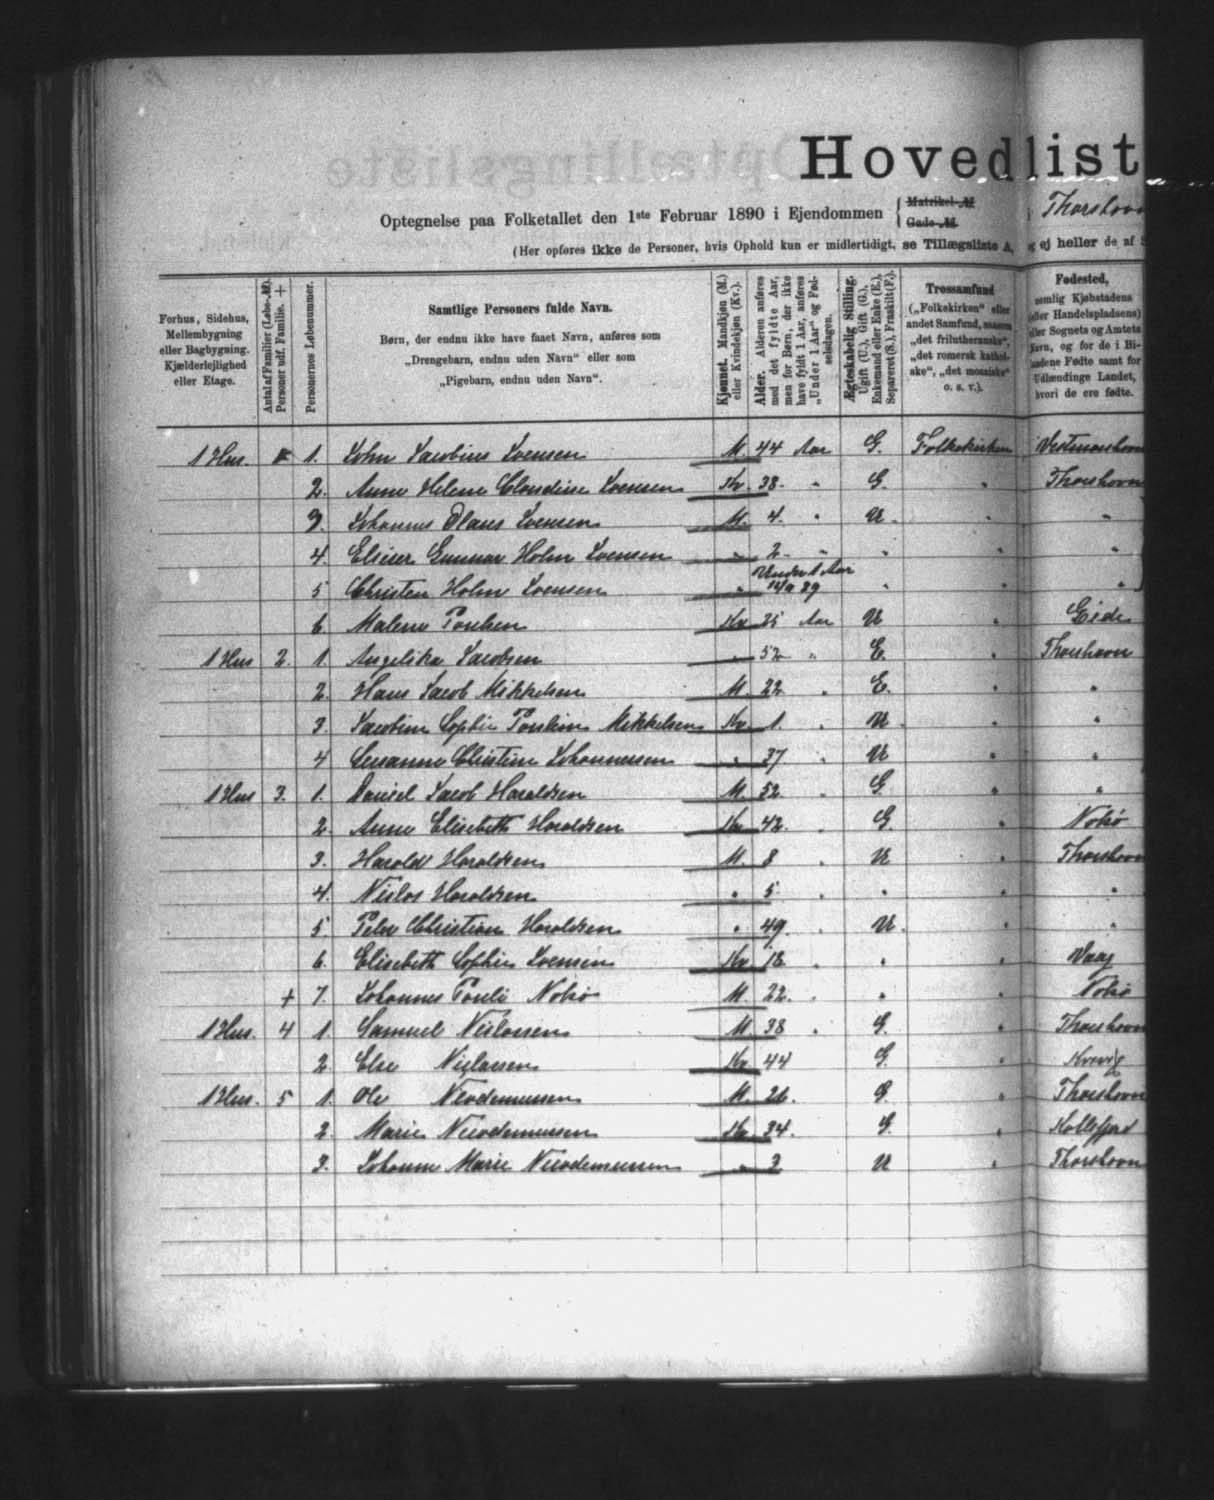 Hovedlist
Optegnelse paa Folketallet den 1ste Februar 1890 i Ejendommen { Matrikel-№ Gade-№ } Thorshavn
(Her opføres ikke de Personer, hvis Ophold kun er midlertidigt, se Tillægsliste A, og ej heller de af
Forhus, Sidehus, Mellembygning eller Bagbygning. Kjælderlejlighed eller Etage.
Antal af Familier (Løbe-№). Personer udf. Familie. +
Personernes Løbenummer.
Samtlige Personers fulde Navn.
Børn, der endnu ikke have faaet Navn, anføres som „Drengebarn, endnu uden Navn“ eller som „Pigebarn, endnu uden Navn“.
Kjønnet. Mandkjøn (M.) eller Kvindekjøn (Kv.).
Alder. Alderen anføres med det fyldte Aar, men for Børn, der ikke have fyldt 1 Aar, anføres „Under 1 Aar“ og Fødselsdagen.
Ægteskabelig Stilling. Ugift (U.), Gift (G.), Enkemand eller Enke (E.), Separeret (S.), Fraskilt (F.).
Trossamfund („Folkekirken“ eller andet Samfund, saasom „det frilutheranske“, „det romersk katholske“, „det mosaiske“ o. s. v.).
Fødested, nemlig Kjøbstadens (eller Handelspladsens) eller Sognets og Amtets Navn, og for de i Bilandene Fødte samt for Udlændinge Landet, hvori de ere fødte.
1 Hus. 1. John Jacobius Joensen M. 44 Aar G. Folkekirken Vestmanhavn
2. Anne Helene Claudine Joensen Kv. 38. " G. " Thorshavn
3. Johannes Olaus Joensen M. 4. " U. " "
4. Elieser Gunnar Holm Joensen " 2 " " " "
5 Christen Holm Joensen " Under 1 Aar 89 " " "
6. Malene Poulsen Kv. 25 Aar U " Eide
1 Hus 2. 1. Angelika Jacobsen " 52 " E. " Thorshavn
2. Hans Jacob Mikkelsen M. 22 . E. " "
3. Jacobine Sophie Mikkelsen Kv. 1. . U. " "
4 Susanne Christine Johannessen " 37 . U " "
1 Hus 3. 1. Daniel Jacob Haraldsen M. 52 . G " "
2 Anne Elisabeth Haraldsen Kv. 42. . G. " Nolsø
3. Harald Haraldsen M. 8 . U " Thorshavn
4. Niclas Haraldsen " 5. . " " "
5 Peter Christian Haraldsen " 49. . U. " "
6. Elisabeth Sophie Joensen Kv. 18 . " " Vaag
+ 7. Johannes Pouli Nolsø M. 22. . " " Nolsø
1 Hus. 4 1. Samuel Niclassen M. 38 . G. " Thorshavn
2. Else Niclassen Kv. 44 G. " Kvivig
1 Hus. 5 1. Ole Nicodemussen M. 26. G. " Thorshavn
2. Marie Nicodemussen Kv. 34. G. " Kollefjord
3. Johanne Marie Nicodemussen " 3 U " Thorshavn